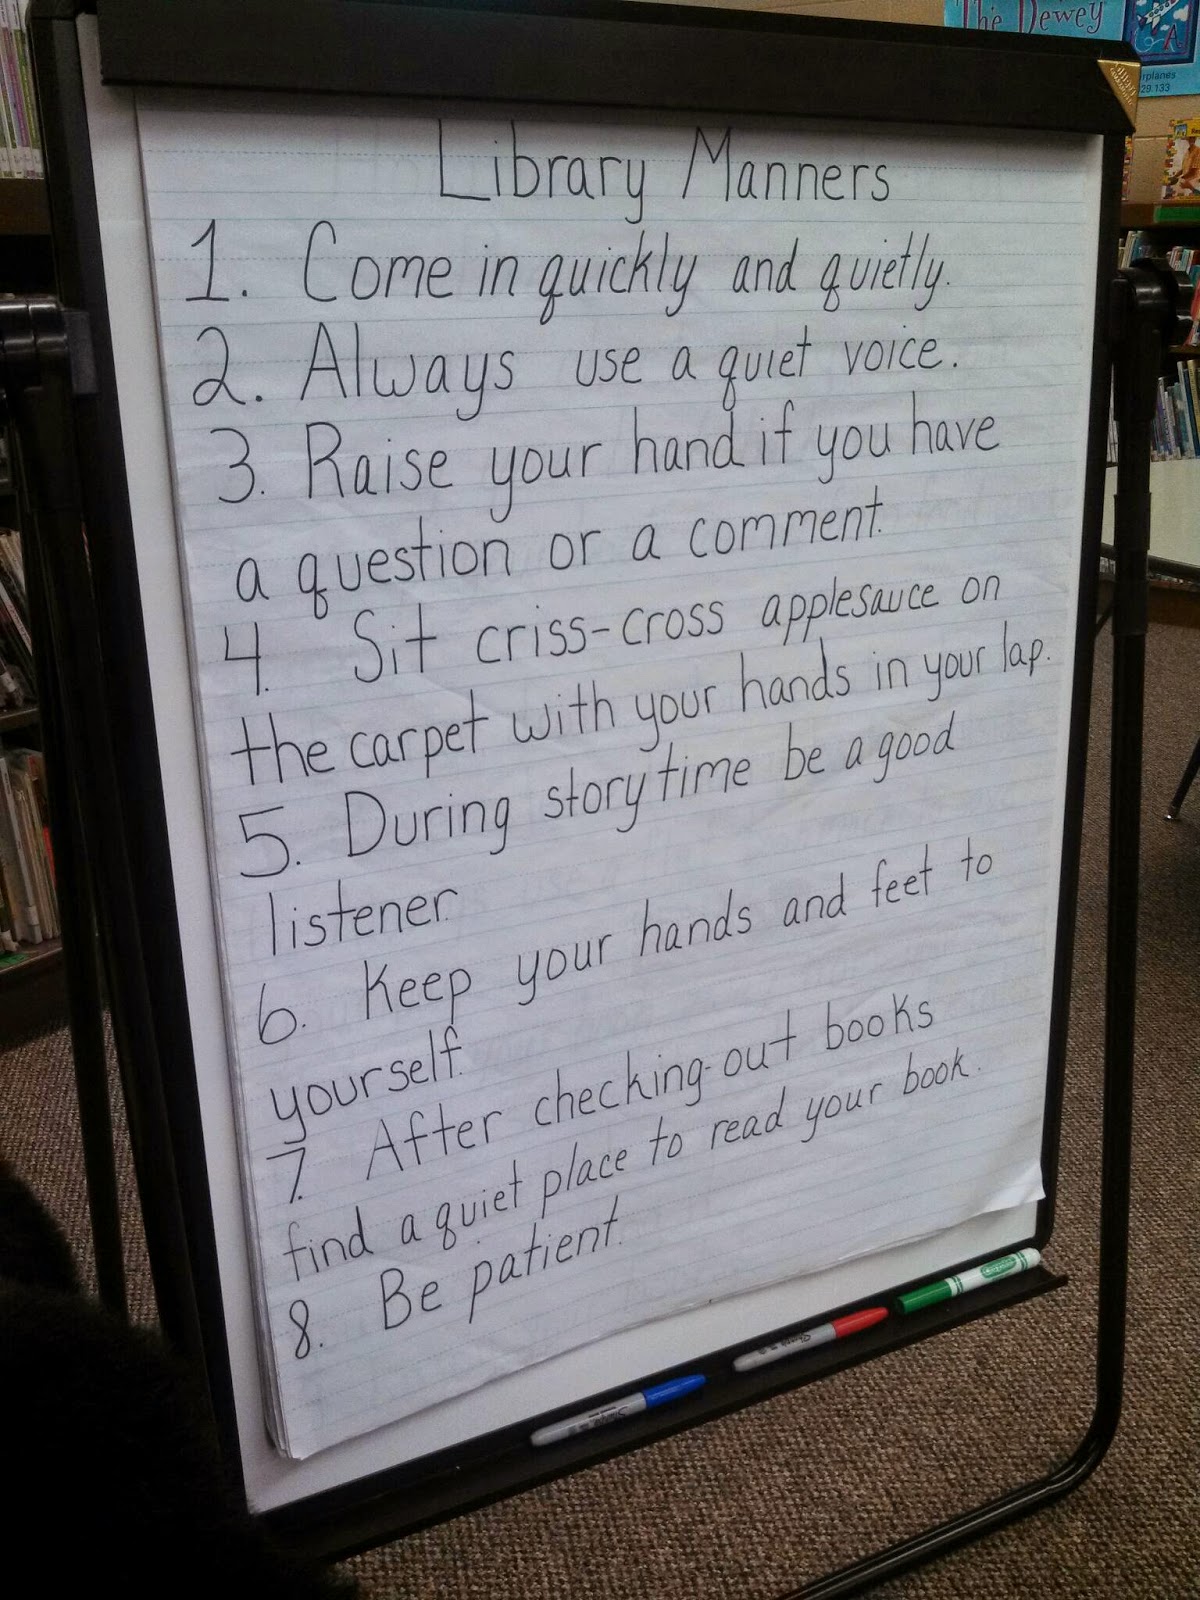 The Dewey
rplanes
29.133
Library Manners
1. Come in quickly and quietly.
2. Always use a quiet voice.
3. Raise your hand if you have
a question or a comment.
4. Sit criss-cross applesauce on
the carpet with your hands in your lap.
5. During storytime be a good
listener.
6. Keep your hands and feet to
yourself.
7. After checking-out books
find a quiet place to read your book.
8. Be patient.
Crayola
Sharpie
Sharpie